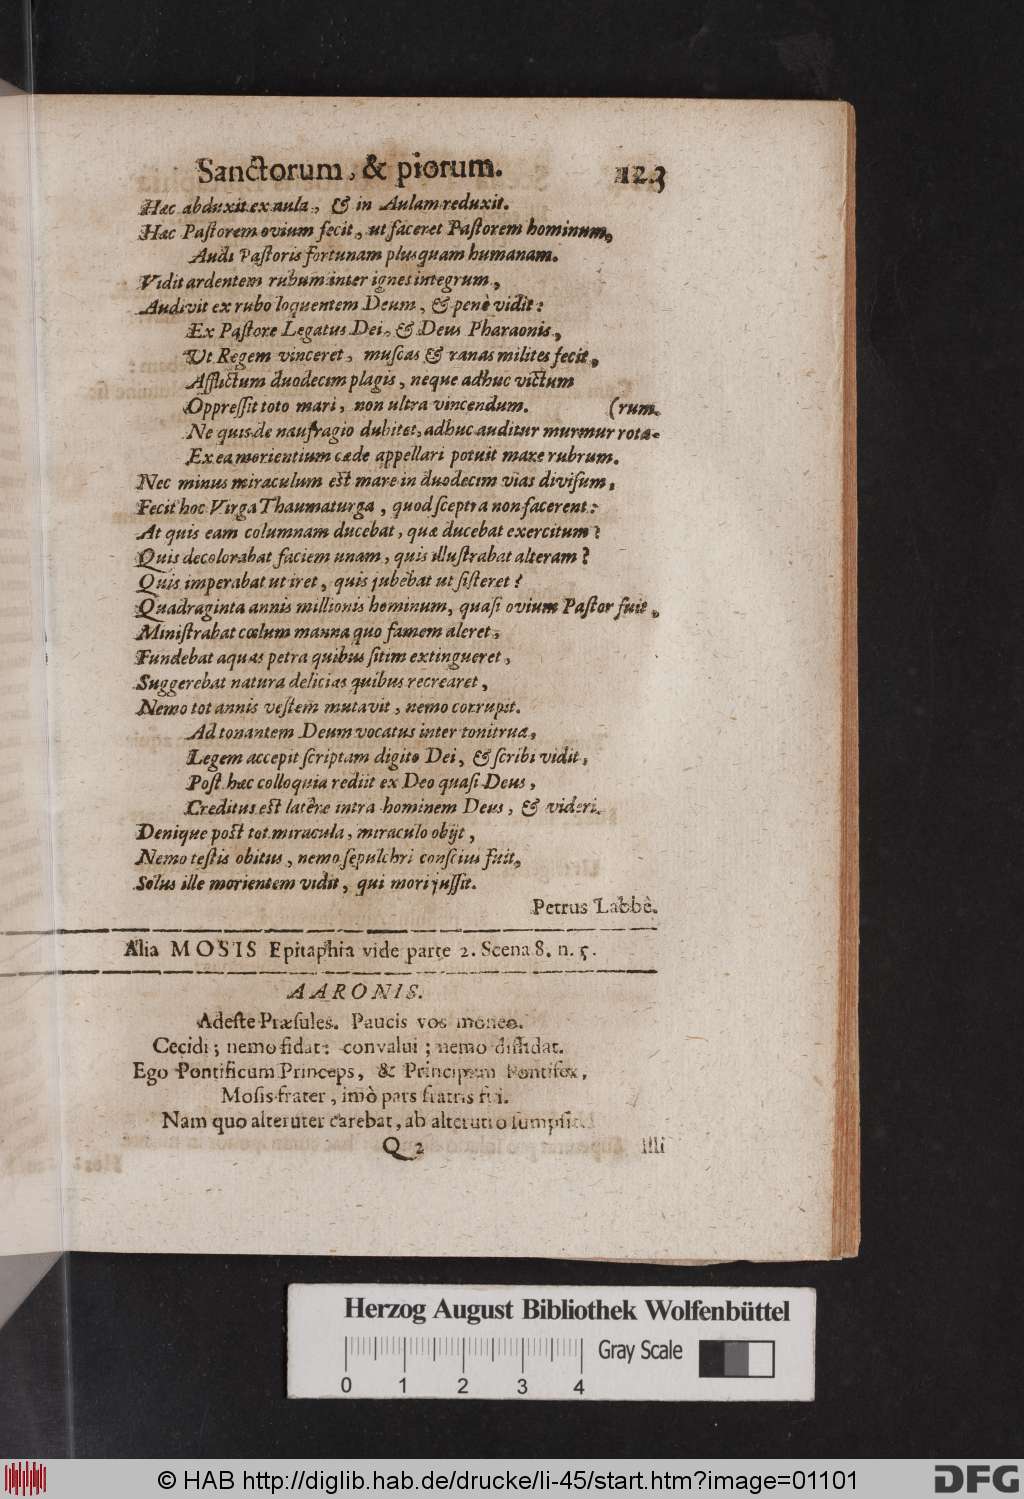 Sanctorum, & piorum. 123
Hæc abduxit ex aula, & in Aulam reduxit.
Hæc Paſtorem ovium fecit, ut faceret Paſtorem hominum,
Audi Paſtoris fortunam plusquam humanam.
Vidit ardentem rubum inter ignes integrum,
Audivit ex rubo loquentem Deum, & penè vidit:
Ex Paſtore Legatus Dei, & Deus Pharaonis,
Ut Regem vinceret, muſcas & ranas milites fecit,
Afflictum duodecim plagis, neque adhuc victum
Oppreſſit toto mari, non ultra vincendum. (rum.
Ne quis de naufragio dubitet, adhuc auditur murmur rota-
Ex ea morientium cæde appellari potuit mare rubrum.
Nec minus miraculum eſt mare in duodecim vias diviſum,
Fecit hoc Virga Thaumaturga, quod ſceptra non facerent:
At quis eam columnam ducebat, quæ ducebat exercitum?
Quis decolorabat faciem unam, quis illuſtrabat alteram?
Quis imperabat ut iret, quis jubebat ut ſiſteret?
Quadraginta annis millionis hominum, quaſi ovium Paſtor fuit,
Miniſtrabat cœlum manna quo famem aleret,
Fundebat aquas petra quibus ſitim extingueret,
Suggerebat natura delicias quibus recrearet,
Nemo tot annis veſtem mutavit, nemo corrupit.
Ad tonantem Deum vocatus inter tonitrua,
Legem accepit ſcriptam digito Dei, & ſcribi vidit,
Poſt hæc colloquia rediit ex Deo quaſi Deus,
Creditus eſt latere intra hominem Deus, & videri.
Denique poſt tot miracula, miraculo obijt,
Nemo teſtis obitus, nemo ſepulchri conſcius fuit,
Solus ille morientem vidit, qui mori juſſit.
Petrus Labbè.
Alia MOSIS Epitaphia vide parte 2. Scena 8. n. 5.
AARONIS.
Adeſte Præſules. Paucis vos moneo.
Cecidi; nemo fidat: convalui; nemo diffidat.
Ego Pontificum Princeps, & Principum Pontifex,
Moſis frater, imò pars fratris fui.
Nam quo alteruter carebat, ab alterutro ſumpſit.
Q 2 illi
Herzog August Bibliothek Wolfenbüttel
Gray Scale
0 1 2 3 4
© HAB http://diglib.hab.de/drucke/li-45/start.htm?image=01101
DFG